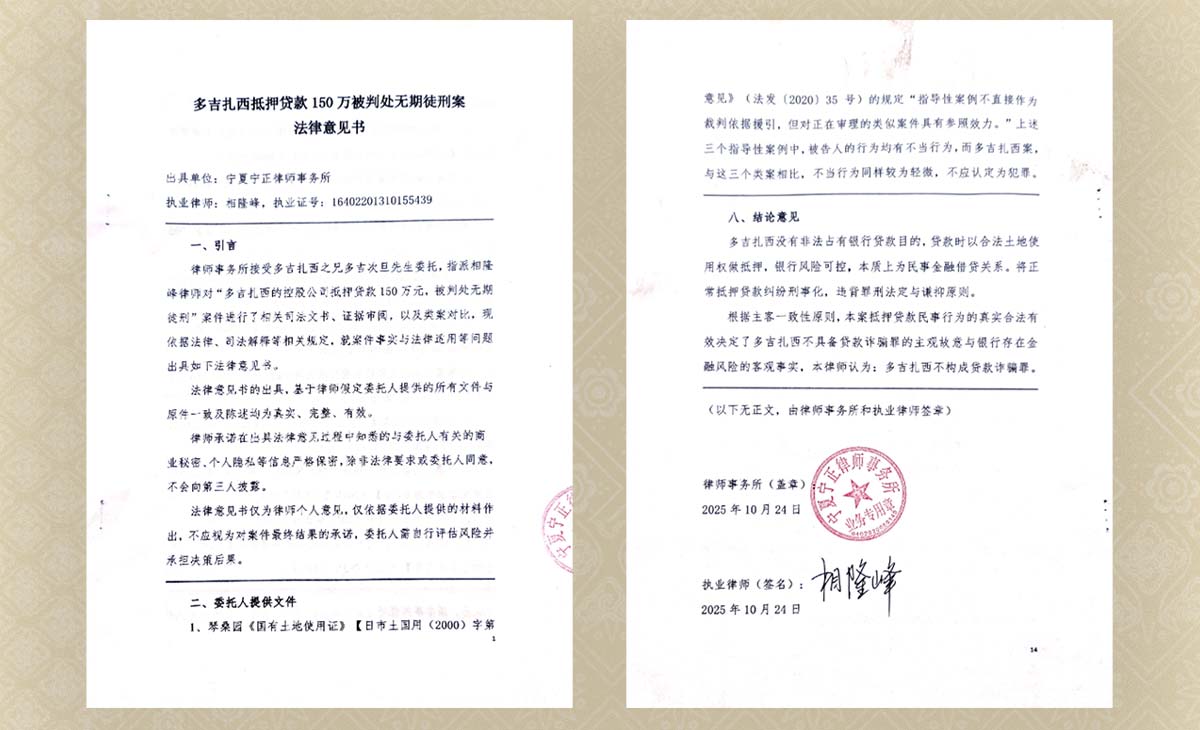 多吉扎西抵押贷款 150 万被判处无期徒刑案
法律意见书
出具单位：宁夏宁正律师事务所
执业律师：相隆峰，执业证号：16402201310155439
一、引言
律师事务所接受多吉扎西之兄多吉次旦先生委托，指派相隆
峰律师对“多吉扎西的控股公司抵押贷款 150 万元，被判处无期
徒刑”案件进行了相关司法文书、证据审阅，以及类案对比，现
依据法律、司法解释等相关规定，就案件事实与法律适用等问题
出具如下法律意见书。
法律意见书的出具，基于律师假定委托人提供的所有文件与
原件一致及陈述均为真实、完整、有效。
律师承诺在出具法律意见过程中知悉的与委托人有关的商
业秘密、个人隐私等信息严格保密，除非法律要求或委托人同意，
不会向第三人披露。
法律意见书仅为律师个人意见，仅依据委托人提供的材料作
出，不应视为对案件最终结果的承诺，委托人需自行评估风险并
承担决策后果。
二、委托人提供文件
1、琴桑园《国有土地使用证》【日市土国用（2000）字第
1
意见》（法发〔2020〕35 号）的规定“指导性案例不直接作为
裁判依据援引，但对正在审理的类似案件具有参照效力。”上述
三个指导性案例中，被告人的行为均有不当行为，而多吉扎西案，
与这三个类案相比，不当行为同样较为轻微，不应认定为犯罪。
八、结论意见
多吉扎西没有非法占有银行贷款目的，贷款时以合法土地使
用权做抵押，银行风险可控，本质上为民事金融借贷关系。将正
常抵押贷款纠纷刑事化，违背罪刑法定与谦抑原则。
根据主客一致性原则，本案抵押贷款民事行为的真实合法有
效决定了多吉扎西不具备贷款诈骗罪的主观故意与银行存在金
融风险的客观事实，本律师认为：多吉扎西不构成贷款诈骗罪。
（以下无正文，由律师事务所和执业律师签章）
律师事务所（盖章）：
2025 年 10 月 24 日
宁夏宁正律师事务所
业务专用章
执业律师（签名）：相隆峰
2025 年 10 月 24 日
14